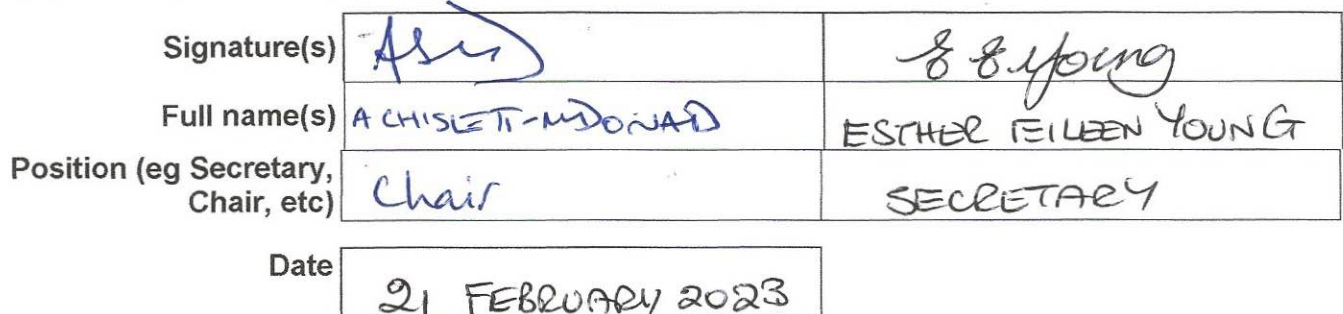 Signature(s) E E Young
Full name(s) A CHISLETT-MCDONALD ESTHER EILEEN YOUNG
Position (eg Secretary,
Chair, etc) Chair SECRETARY
Date 21 FEBRUARY 2023